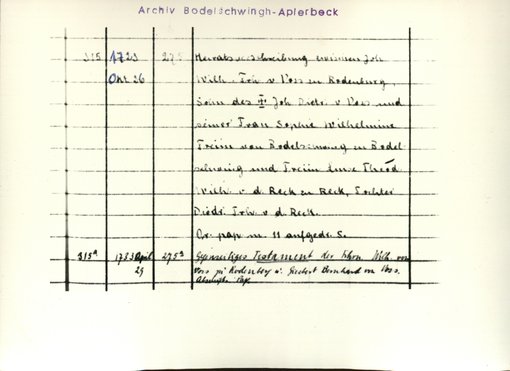 Archiv Bodelschwingh-Aplerbeck
315 1723 275 Heiratsverschreibung zwischen Joh
Okt 26 Wilh. Frh. v Voss zu Rodenburg,
Sohn des Joh Dietr. v Voss und
seiner Frau Sophie Wilhelmine
Freiin von Bodelschwing zu Bodel
schwing und Freiin Luise Theod
Wilh. v. d. Reck zu Reck, Tochter
Diedr. Frh. v. d. Reck.
Or. pap m. 11 aufgedr. S.
315a 1783 April 275a Gegenseitiges Testament der Frhrn. Wilh. von
29 Voss zu Rodenberg u. Bernhard von Voss.